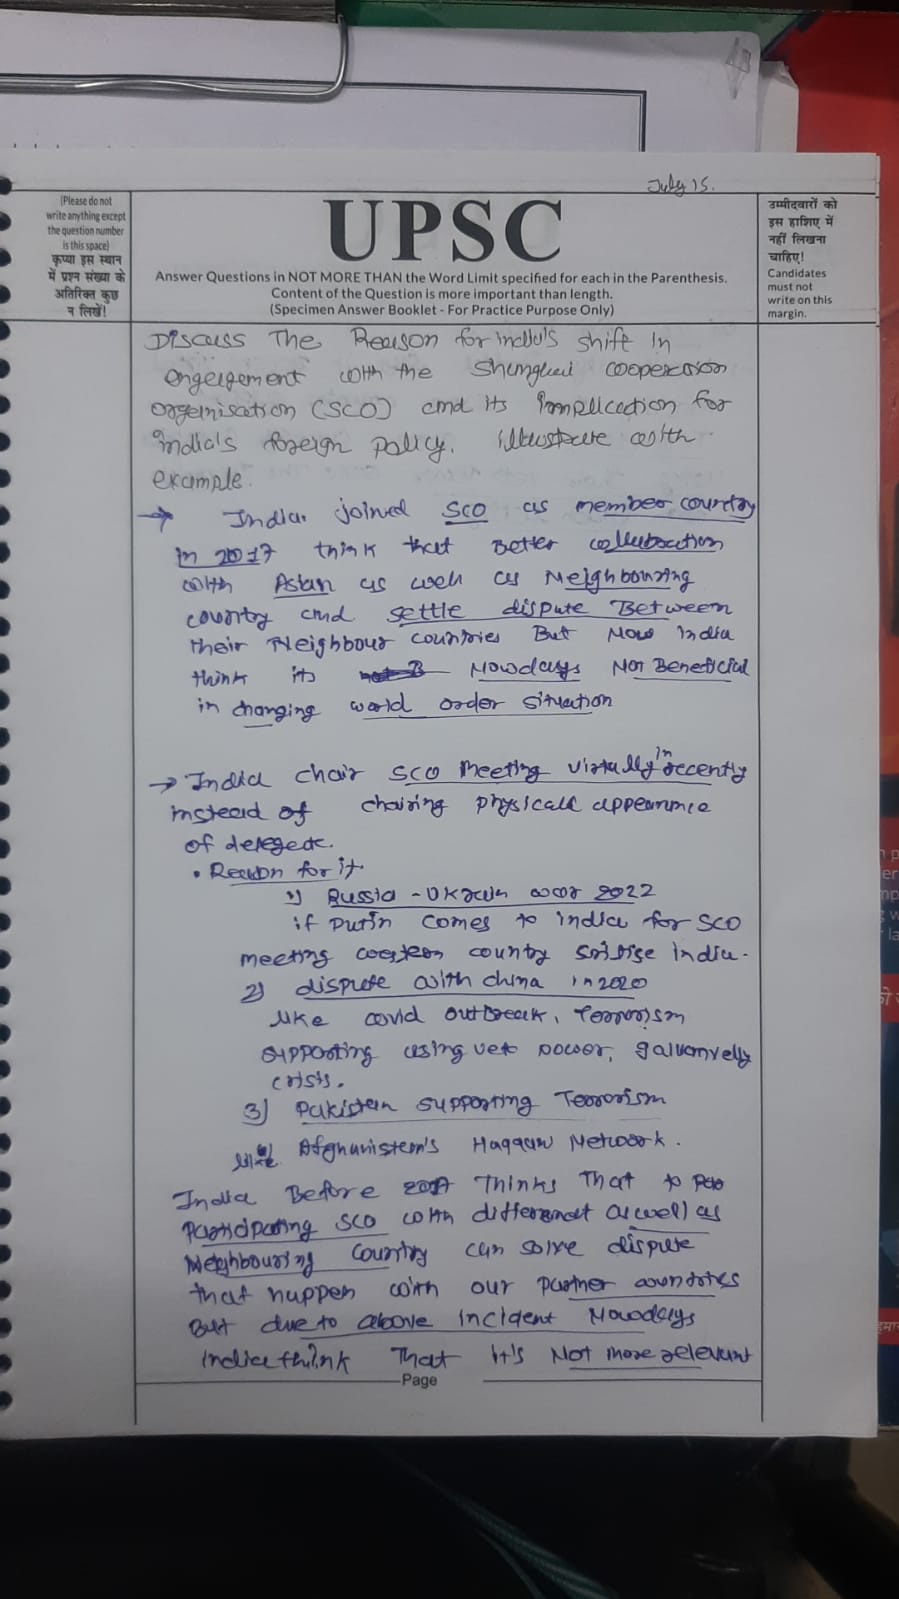 July 15.
(Please do not
write anything except
the question number
is this space)
कृप्या इस स्थान
में प्रश्न संख्या के
अतिरिक्त कुछ
न लिखें!
UPSC
Answer Questions in NOT MORE THAN the Word Limit specified for each in the Parenthesis.
Content of the Question is more important than length.
(Specimen Answer Booklet - For Practice Purpose Only)
उम्मीदवारों को
इस हाशिए में
नहीं लिखना
चाहिए!
Candidates
must not
write on this
margin.
Discuss The Reason for india's shift in
engergement with the Shunghai cooperation
orgenisation (SCO) and its implication for
india's foreign policy. illustrate with
example.
→ India. joined SCO as member country
in 2017 think that Better collubration
with Asian as well as Neighbouring
country and settle dispute Between
their Neighbour countries But Now India
think its Nowdays Not Beneficial
in changing world order situation
→ India chair SCO meeting virtually in recently
insteed of chairing physicall appearance
of delegate.
• Reason for it
1) Russia - Ukrain war 2022
if Putin comes to india for SCO
meeting western country india.
2) dispute with china in 2020
like covid outbreak, Terrorism
supporting using veto power, galvanvelly
crisis.
3) Pakistan supporting Terrorism
like Afghanistan's Haqqani Network.
India Before 2017 Thinks That to
Participating SCO with different as well as
Neighbouring Country can solve dispute
that happen with our partner countries
But due to above incident Nowdays
india think That it's Not more relevant
Page